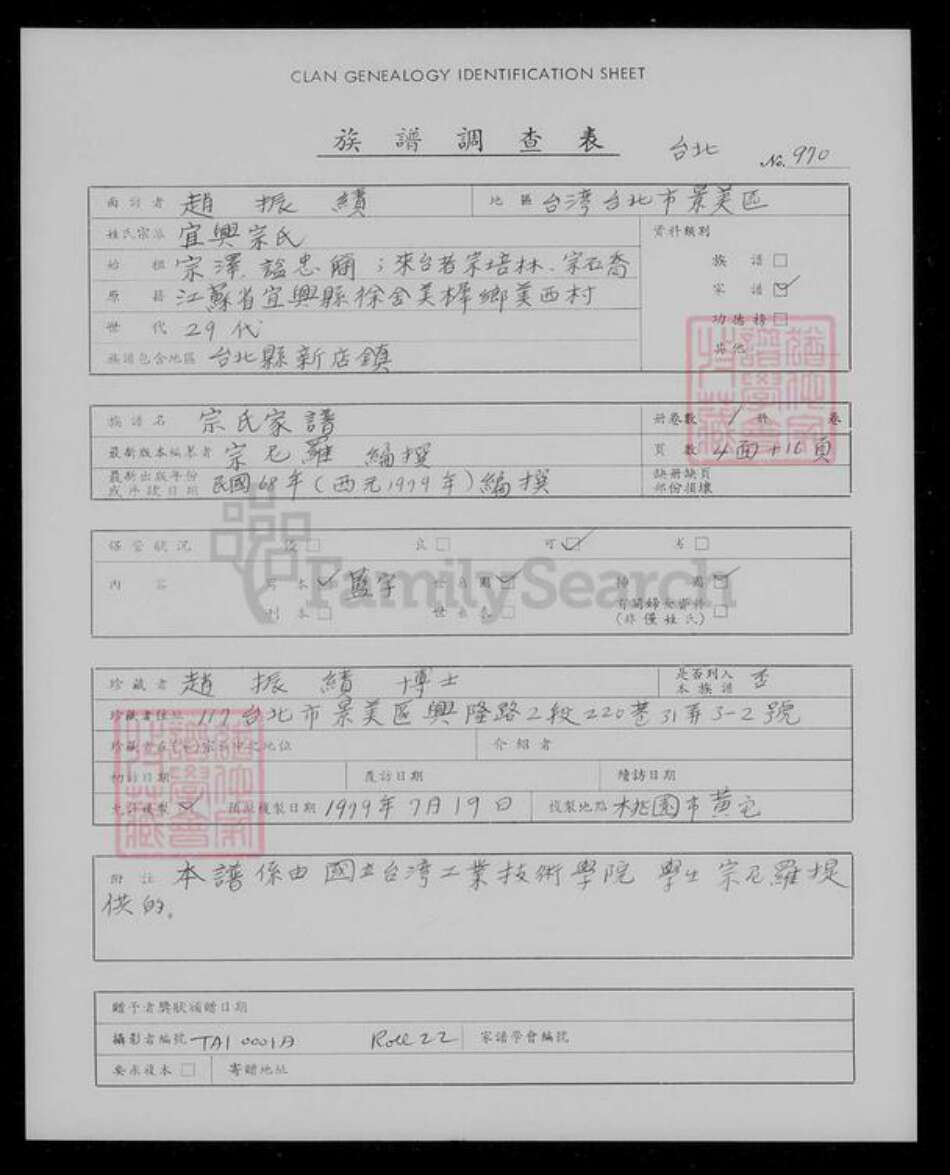 CLAN GENEALOGY IDENTIFICATION SHEET
族譜調查表
台北 No. 970
趙振績 地區 台湾台北市景美區
姓氏宗派 宜興宗氏 資料類別
始祖 宗澤,諡忠簡;來台者宗培林、宗石喬 族譜 □
原籍 江蘇省宜興縣徐舍美樨鄉美西村 家譜 ☑
世代 29代 功德榜 □
族譜包含地區 台北縣新店鎮 其他
族譜名 宗氏家譜 冊卷數 1 冊 卷
最新版本編著者 宗尼羅 編撰 頁數 4面+16頁
最新出版年份或序跋日期 民國68年(西元1979年)編撰 缺冊缺頁部份損壞
保管狀況 良 □ 可 ☑ 劣 □
內容 寫本 ☑ 藍字 ☑ ☑
刊本 □ 世系表 □ 有關婦女資料(非僅姓氏) □
FamilySearch
珍藏者 趙振績 博士 是否列入本族譜 否
珍藏者住址 117台北市景美區興隆路2段220巷31弄3-2號
介紹者
初訪日期 覆訪日期 續訪日期
允許複製 ✓ 複製日期 1979年7月19日 複製地點 桃園市黃宅
附註 本譜係由國立台湾工業技術學院 學生宗尼羅提
供的。
贈予者獎狀頒贈日期
攝影者編號 TAI 0001A Roll 22 家譜學會編號
要求複本 □ 寄贈地址